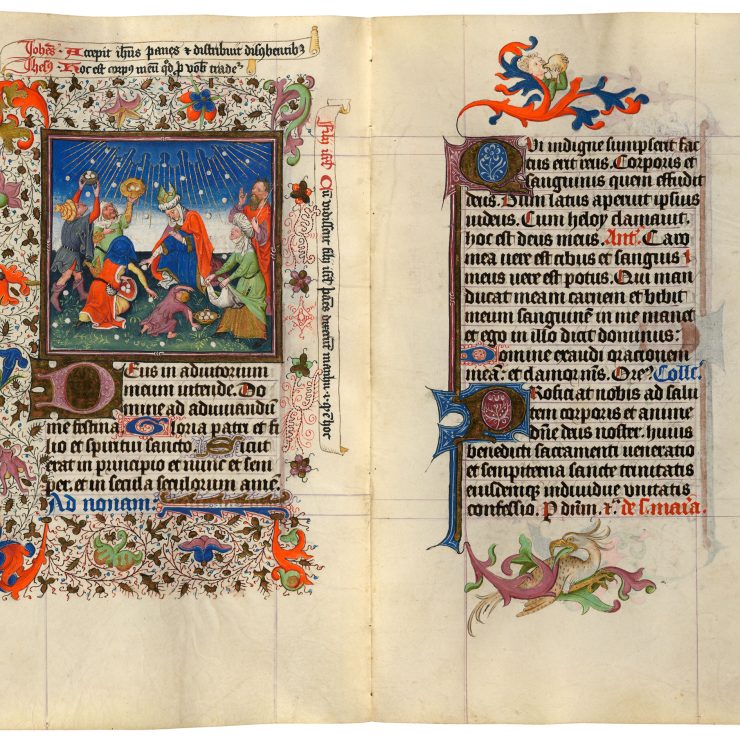 Johēs · Accepit ihūs panes & distribuit discūbentibꝫ
Jhesꝰ · Hoc est corpꝰ meū qd̄ ꝓ vob̄ trade
Cū vidissent filij isrl̄
Deus in adiutorium
meum intende. Do
mine ad adiuuandum
me festina Gloria patri et fi
lio et spiritui sancto. Sicut
erat in principio et nunc et sem
per, et in secula seculorum amē.
Ad nonam:
Qui indigne sumpserit fac
tus erit reus. Corporis et
sanguinis quem effudit
deus. Dum latus aperuit ipsius
iudeus. Cum heloy clamauit.
hoc est deus meus. Ant. Caro
mea uere est cibus et sanguis
meus uere est potus. Qui man
ducat meam carnem et bibit
meum sanguinē in me manet
et ego in illo dicit dominus:
Domine exaudi orationem
meā: et clamor nr̄s. Orem̄ꝰ Coll̄c.
Proficiat nobis ad salu
tem corporis et anime
dn̄e deus noster. huius
benedicti sacramenti ueneratio
et sempiterna sancte trinitatis
eiusdemqꝫ indiuidue unitatis
confessio. P dn̄um. &c̄ de s. maria.